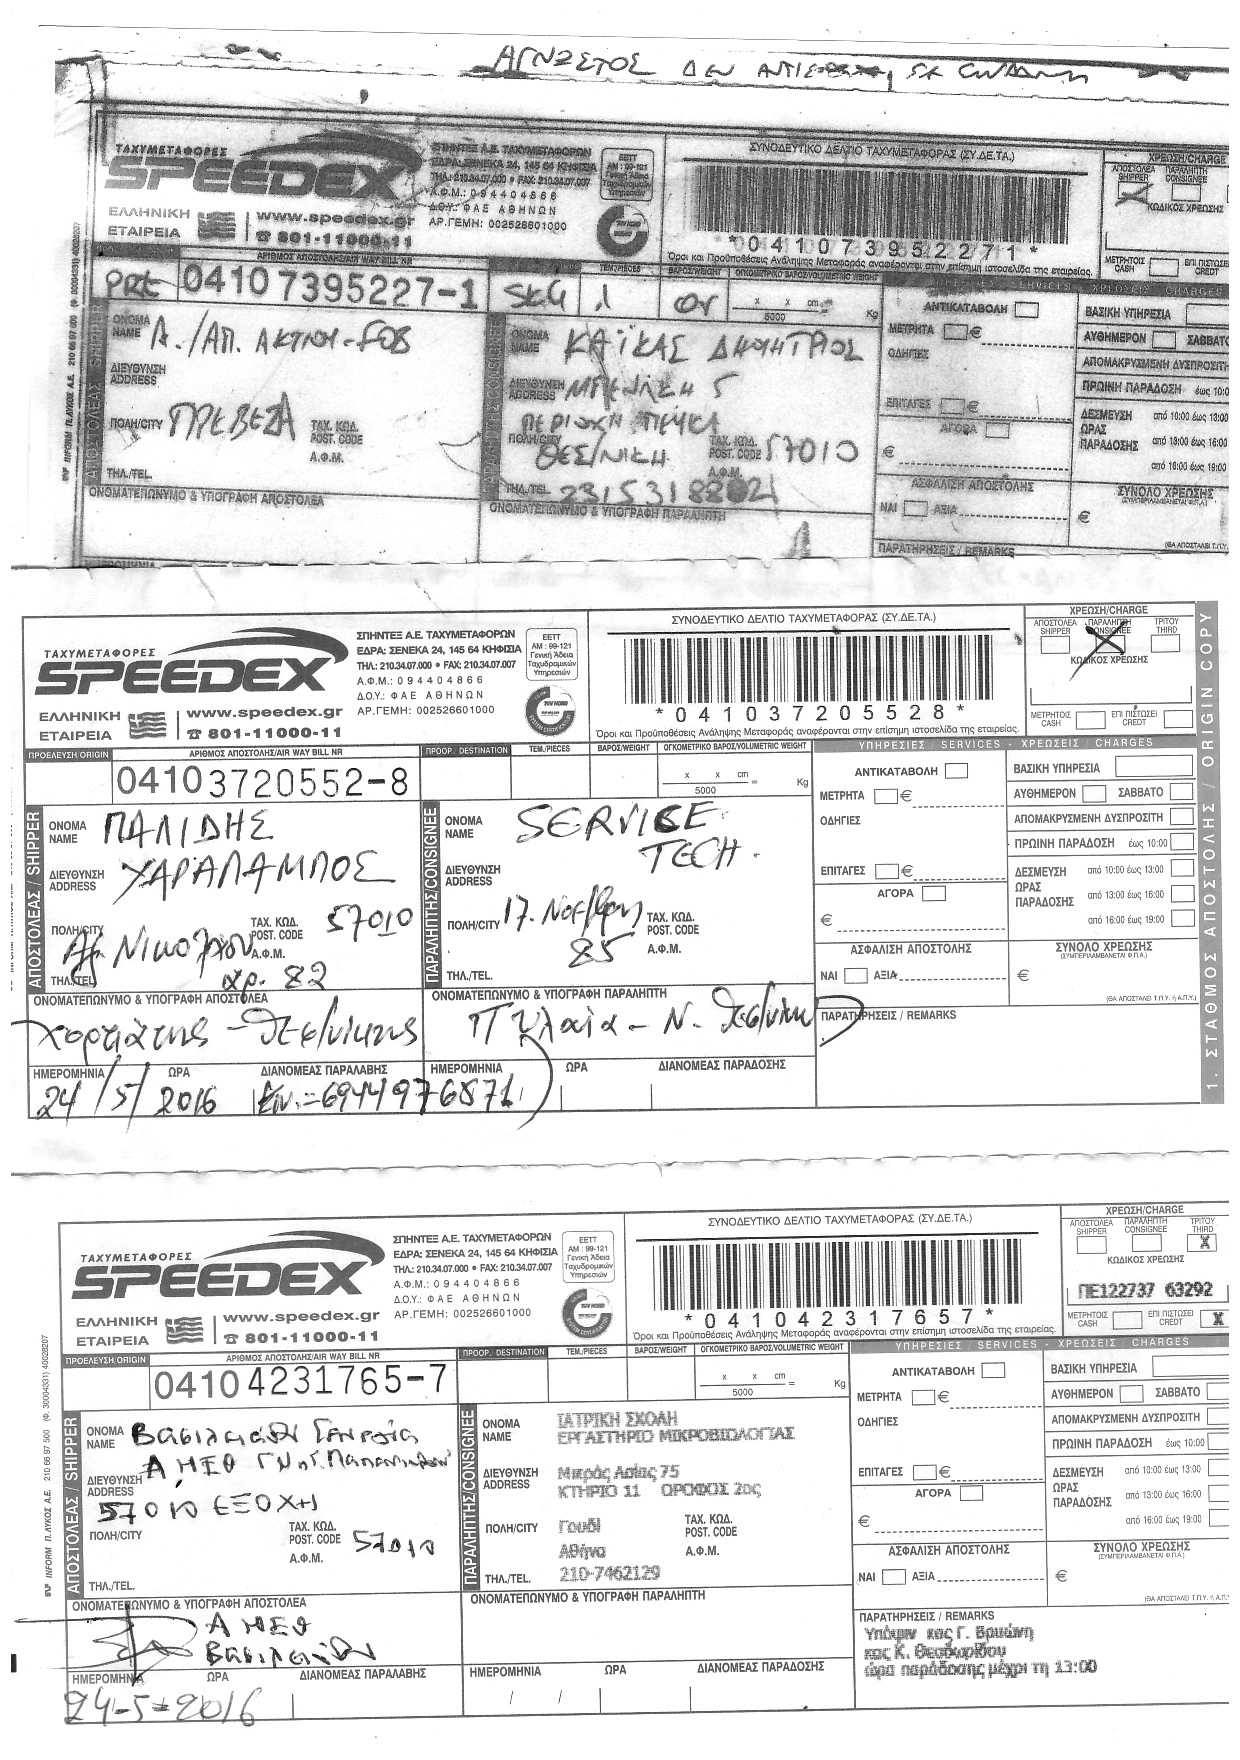 ΑΓΝΩΣΤΟΣ ΔΕΝ
ΤΑΧΥΜΕΤΑΦΟΡΕΣ
SPEEDEX
ΕΛΛΗΝΙΚΗ ΕΤΑΙΡΕΙΑ
www.speedex.gr
☎ 801-11000-11
ΣΠΗΝΤΕΞ Α.Ε. ΤΑΧΥΜΕΤΑΦΟΡΩΝ
ΕΔΡΑ: ΣΕΝΕΚΑ 24, 145 64 ΚΗΦΙΣΙΑ
ΤΗΛ: 210.34.07.000 • FAX: 210.34.07.007
Α.Φ.Μ.: 094404866
Δ.Ο.Υ.: ΦΑΕ ΑΘΗΝΩΝ
ΑΡ.ΓΕΜΗ: 002526601000
ΕΕΤΤ
ΑΜ : 99-121
Γενική Άδεια
Ταχυδρομικών
Υπηρεσιών
ΣΥΝΟΔΕΥΤΙΚΟ ΔΕΛΤΙΟ ΤΑΧΥΜΕΤΑΦΟΡΑΣ (ΣΥ.ΔΕ.ΤΑ.)
*041073952271*
Όροι και Προϋποθέσεις Ανάληψης Μεταφοράς αναφέρονται στην επίσημη ιστοσελίδα της εταιρείας.
ΧΡΕΩΣΗ/CHARGE
ΑΠΟΣΤΟΛΕΑ SHIPPER
ΠΑΡΑΛΗΠΤΗ CONSIGNEE
ΚΩΔΙΚΟΣ ΧΡΕΩΣΗΣ
ΜΕΤΡΗΤΟΙΣ CASH
ΕΠΙ ΠΙΣΤΩΣΕΙ CREDIT
ΑΡΙΘΜΟΣ ΑΠΟΣΤΟΛΗΣ/AIR WAY BILL NR
ΤΕΜ./PIECES
ΒΑΡΟΣ/WEIGHT
ΟΓΚΟΜΕΤΡΙΚΟ ΒΑΡΟΣ/VOLUMETRIC WEIGHT
PRE 0410 7395227-1 SKG 1
x x cm = Kg
5000
ΟΝΟΜΑ NAME Α./ΑΠ. ΑΚΤΙΟΥ-FOB
ΔΙΕΥΘΥΝΣΗ ADDRESS
ΠΟΛΗ/CITY ΠΡΕΒΕΖΑ
ΤΑΧ. ΚΩΔ. POST. CODE
Α.Φ.Μ.
ΤΗΛ./TEL.
ΟΝΟΜΑΤΕΠΩΝΥΜΟ & ΥΠΟΓΡΑΦΗ ΑΠΟΣΤΟΛΕΑ
ΟΝΟΜΑ NAME ΚΑΪΚΑΣ ΔΗΜΗΤΡΙΟΣ
ΔΙΕΥΘΥΝΣΗ ADDRESS ΜΠΕΝΙΖΗ 5
ΠΕΡΙΟΧΗ ΠΕΥΚΑ
ΠΟΛΗ/CITY ΘΕΣ/ΝΙΚΗ
ΤΑΧ. ΚΩΔ. POST. CODE 57010
Α.Φ.Μ.
ΤΗΛ./TEL.
ΟΝΟΜΑΤΕΠΩΝΥΜΟ & ΥΠΟΓΡΑΦΗ ΠΑΡΑΛΗΠΤΗ
ΧΡΕΩΣΕΙΣ / CHARGES
ΑΝΤΙΚΑΤΑΒΟΛΗ
ΜΕΤΡΗΤΑ €
ΟΔΗΓΙΕΣ
ΕΠΙΤΑΓΕΣ €
ΑΓΟΡΑ
€
ΑΣΦΑΛΙΣΗ ΑΠΟΣΤΟΛΗΣ
ΝΑΙ ΑΞΙΑ
ΠΑΡΑΤΗΡΗΣΕΙΣ / REMARKS
ΒΑΣΙΚΗ ΥΠΗΡΕΣΙΑ
ΑΥΘΗΜΕΡΟΝ ΣΑΒΒΑΤΟ
ΑΠΟΜΑΚΡΥΣΜΕΝΗ ΔΥΣΠΡΟΣΙΤΗ
ΠΡΩΙΝΗ ΠΑΡΑΔΟΣΗ έως 10:00
ΔΕΣΜΕΥΣΗ ΩΡΑΣ ΠΑΡΑΔΟΣΗΣ
από 10:00 έως 13:00
από 13:00 έως 16:00
από 16:00 έως 19:00
ΣΥΝΟΛΟ ΧΡΕΩΣΗΣ
(ΣΥΜΠΕΡΙΛΑΜΒΑΝΕΤΑΙ Φ.Π.Α.)
€
ΤΑΧΥΜΕΤΑΦΟΡΕΣ
SPEEDEX
ΕΛΛΗΝΙΚΗ ΕΤΑΙΡΕΙΑ
www.speedex.gr
☎ 801-11000-11
ΣΠΗΝΤΕΞ Α.Ε. ΤΑΧΥΜΕΤΑΦΟΡΩΝ
ΕΔΡΑ: ΣΕΝΕΚΑ 24, 145 64 ΚΗΦΙΣΙΑ
ΤΗΛ: 210.34.07.000 • FAX: 210.34.07.007
Α.Φ.Μ.: 094404866
Δ.Ο.Υ.: ΦΑΕ ΑΘΗΝΩΝ
ΑΡ.ΓΕΜΗ: 002526601000
ΕΕΤΤ
ΑΜ : 99-121
Γενική Άδεια
Ταχυδρομικών
Υπηρεσιών
ΣΥΝΟΔΕΥΤΙΚΟ ΔΕΛΤΙΟ ΤΑΧΥΜΕΤΑΦΟΡΑΣ (ΣΥ.ΔΕ.ΤΑ.)
*041037205528*
Όροι και Προϋποθέσεις Ανάληψης Μεταφοράς αναφέρονται στην επίσημη ιστοσελίδα της εταιρείας.
ΧΡΕΩΣΗ/CHARGE
ΑΠΟΣΤΟΛΕΑ SHIPPER
ΠΑΡΑΛΗΠΤΗ CONSIGNEE
ΤΡΙΤΟΥ THIRD
ΚΩΔΙΚΟΣ ΧΡΕΩΣΗΣ
ΜΕΤΡΗΤΟΙΣ CASH
ΕΠΙ ΠΙΣΤΩΣΕΙ CREDIT
1. ΣΤΑΘΜΟΣ ΑΠΟΣΤΟΛΗΣ / ORIGIN COPY
ΠΡΟΕΛΕΥΣΗ ORIGIN
ΑΡΙΘΜΟΣ ΑΠΟΣΤΟΛΗΣ/AIR WAY BILL NR
ΠΡΟΟΡ. DESTINATION
ΤΕΜ./PIECES
ΒΑΡΟΣ/WEIGHT
ΟΓΚΟΜΕΤΡΙΚΟ ΒΑΡΟΣ/VOLUMETRIC WEIGHT
0410 3720552-8
x x cm = Kg
5000
ΑΠΟΣΤΟΛΕΑΣ / SHIPPER
ΟΝΟΜΑ NAME ΠΑΛΙΔΗΣ
ΧΑΡΑΛΑΜΠΟΣ
ΔΙΕΥΘΥΝΣΗ ADDRESS
ΤΑΧ. ΚΩΔ. POST. CODE 57010
ΠΟΛΗ/CITY Αγ. Νικολάου
Α.Φ.Μ.
ΤΗΛ./TEL. αρ. 82
ΟΝΟΜΑΤΕΠΩΝΥΜΟ & ΥΠΟΓΡΑΦΗ ΑΠΟΣΤΟΛΕΑ
Χορτιάτης - Θεσ/νίκης
ΗΜΕΡΟΜΗΝΙΑ ΩΡΑ ΔΙΑΝΟΜΕΑΣ ΠΑΡΑΛΑΒΗΣ
24/5/2016 Κιν.=6944976871
ΠΑΡΑΛΗΠΤΗΣ/CONSIGNEE
ΟΝΟΜΑ NAME SERVICE
TECH.
ΔΙΕΥΘΥΝΣΗ ADDRESS
ΠΟΛΗ/CITY 17. Νοε/βρη
85
ΤΑΧ. ΚΩΔ. POST. CODE
Α.Φ.Μ.
ΤΗΛ./TEL.
ΟΝΟΜΑΤΕΠΩΝΥΜΟ & ΥΠΟΓΡΑΦΗ ΠΑΡΑΛΗΠΤΗ
Πυλαία - Ν. Θεσ/νίκη
ΗΜΕΡΟΜΗΝΙΑ ΩΡΑ ΔΙΑΝΟΜΕΑΣ ΠΑΡΑΔΟΣΗΣ
ΥΠΗΡΕΣΙΕΣ / SERVICES - ΧΡΕΩΣΕΙΣ / CHARGES
ΑΝΤΙΚΑΤΑΒΟΛΗ
ΜΕΤΡΗΤΑ €
ΟΔΗΓΙΕΣ
ΕΠΙΤΑΓΕΣ €
ΑΓΟΡΑ
€
ΑΣΦΑΛΙΣΗ ΑΠΟΣΤΟΛΗΣ
ΝΑΙ ΑΞΙΑ
ΠΑΡΑΤΗΡΗΣΕΙΣ / REMARKS
ΒΑΣΙΚΗ ΥΠΗΡΕΣΙΑ
ΑΥΘΗΜΕΡΟΝ ΣΑΒΒΑΤΟ
ΑΠΟΜΑΚΡΥΣΜΕΝΗ ΔΥΣΠΡΟΣΙΤΗ
ΠΡΩΙΝΗ ΠΑΡΑΔΟΣΗ έως 10:00
ΔΕΣΜΕΥΣΗ ΩΡΑΣ ΠΑΡΑΔΟΣΗΣ
από 10:00 έως 13:00
από 13:00 έως 16:00
από 16:00 έως 19:00
ΣΥΝΟΛΟ ΧΡΕΩΣΗΣ
(ΣΥΜΠΕΡΙΛΑΜΒΑΝΕΤΑΙ Φ.Π.Α.)
€
(ΘΑ ΑΠΟΣΤΑΛΕΙ Τ.Π.Υ. ή Α.Π.Υ.)
ΤΑΧΥΜΕΤΑΦΟΡΕΣ
SPEEDEX
ΕΛΛΗΝΙΚΗ ΕΤΑΙΡΕΙΑ
www.speedex.gr
☎ 801-11000-11
ΣΠΗΝΤΕΞ Α.Ε. ΤΑΧΥΜΕΤΑΦΟΡΩΝ
ΕΔΡΑ: ΣΕΝΕΚΑ 24, 145 64 ΚΗΦΙΣΙΑ
ΤΗΛ: 210.34.07.000 • FAX: 210.34.07.007
Α.Φ.Μ.: 094404866
Δ.Ο.Υ.: ΦΑΕ ΑΘΗΝΩΝ
ΑΡ.ΓΕΜΗ: 002526601000
ΕΕΤΤ
ΑΜ : 99-121
Γενική Άδεια
Ταχυδρομικών
Υπηρεσιών
ΣΥΝΟΔΕΥΤΙΚΟ ΔΕΛΤΙΟ ΤΑΧΥΜΕΤΑΦΟΡΑΣ (ΣΥ.ΔΕ.ΤΑ.)
*041042317657*
Όροι και Προϋποθέσεις Ανάληψης Μεταφοράς αναφέρονται στην επίσημη ιστοσελίδα της εταιρείας.
ΧΡΕΩΣΗ/CHARGE
ΑΠΟΣΤΟΛΕΑ SHIPPER
ΠΑΡΑΛΗΠΤΗ CONSIGNEE
ΤΡΙΤΟΥ THIRD
X
ΚΩΔΙΚΟΣ ΧΡΕΩΣΗΣ
ΠΕ122737 63292
ΜΕΤΡΗΤΟΙΣ CASH
ΕΠΙ ΠΙΣΤΩΣΕΙ CREDIT X
ΠΡΟΕΛΕΥΣΗ ORIGIN
ΑΡΙΘΜΟΣ ΑΠΟΣΤΟΛΗΣ/AIR WAY BILL NR
ΠΡΟΟΡ. DESTINATION
ΤΕΜ./PIECES
ΒΑΡΟΣ/WEIGHT
ΟΓΚΟΜΕΤΡΙΚΟ ΒΑΡΟΣ/VOLUMETRIC WEIGHT
0410 4231765-7
x x cm = Kg
5000
INFORM Π. ΛΥΚΟΣ Α.Ε. 210 66 97 500 (Φ. 30004331) 40028207
ΑΠΟΣΤΟΛΕΑΣ / SHIPPER
ΟΝΟΜΑ NAME
Α ΜΕΘ
ΔΙΕΥΘΥΝΣΗ ADDRESS
57010 ΕΞΟΧΗ
ΠΟΛΗ/CITY
ΤΑΧ. ΚΩΔ. POST. CODE 57010
Α.Φ.Μ.
ΤΗΛ./TEL.
ΟΝΟΜΑΤΕΠΩΝΥΜΟ & ΥΠΟΓΡΑΦΗ ΑΠΟΣΤΟΛΕΑ
Α ΜΕΘ
ΗΜΕΡΟΜΗΝΙΑ ΩΡΑ ΔΙΑΝΟΜΕΑΣ ΠΑΡΑΛΑΒΗΣ
24-5-2016
ΠΑΡΑΛΗΠΤΗΣ/CONSIGNEE
ΟΝΟΜΑ NAME ΙΑΤΡΙΚΗ ΣΚΟΛΗ
ΕΡΓΑΣΤΗΡΙΟ ΜΙΚΡΟΒΙΟΛΟΓΙΑΣ
ΔΙΕΥΘΥΝΣΗ ADDRESS Μικράς Ασίας 75
ΚΤΗΡΙΟ 11 ΟΡΟΦΟΣ 2ος
ΠΟΛΗ/CITY Γουδί
Αθήνα
ΤΑΧ. ΚΩΔ. POST. CODE
Α.Φ.Μ.
ΤΗΛ./TEL. 210-7462129
ΟΝΟΜΑΤΕΠΩΝΥΜΟ & ΥΠΟΓΡΑΦΗ ΠΑΡΑΛΗΠΤΗ
ΗΜΕΡΟΜΗΝΙΑ ΩΡΑ ΔΙΑΝΟΜΕΑΣ ΠΑΡΑΔΟΣΗΣ
/ /
ΥΠΗΡΕΣΙΕΣ / SERVICES - ΧΡΕΩΣΕΙΣ / CHARGES
ΑΝΤΙΚΑΤΑΒΟΛΗ
ΜΕΤΡΗΤΑ €
ΟΔΗΓΙΕΣ
ΕΠΙΤΑΓΕΣ €
ΑΓΟΡΑ
€
ΑΣΦΑΛΙΣΗ ΑΠΟΣΤΟΛΗΣ
ΝΑΙ ΑΞΙΑ
ΒΑΣΙΚΗ ΥΠΗΡΕΣΙΑ
ΑΥΘΗΜΕΡΟΝ ΣΑΒΒΑΤΟ
ΑΠΟΜΑΚΡΥΣΜΕΝΗ ΔΥΣΠΡΟΣΙΤΗ
ΠΡΩΙΝΗ ΠΑΡΑΔΟΣΗ έως 10:00
ΔΕΣΜΕΥΣΗ ΩΡΑΣ ΠΑΡΑΔΟΣΗΣ
από 10:00 έως 13:00
από 13:00 έως 16:00
από 16:00 έως 19:00
ΣΥΝΟΛΟ ΧΡΕΩΣΗΣ
(ΣΥΜΠΕΡΙΛΑΜΒΑΝΕΤΑΙ Φ.Π.Α.)
€
(ΘΑ ΑΠΟΣΤΑΛΕΙ Τ.Π.Υ. ή Α.Π.Υ.)
ΠΑΡΑΤΗΡΗΣΕΙΣ / REMARKS
Υπόψιν κας Γ. Βρυώνη
κας Κ. Θεοδωρίδου
ώρα παράδοσης μέχρι τη 13:00